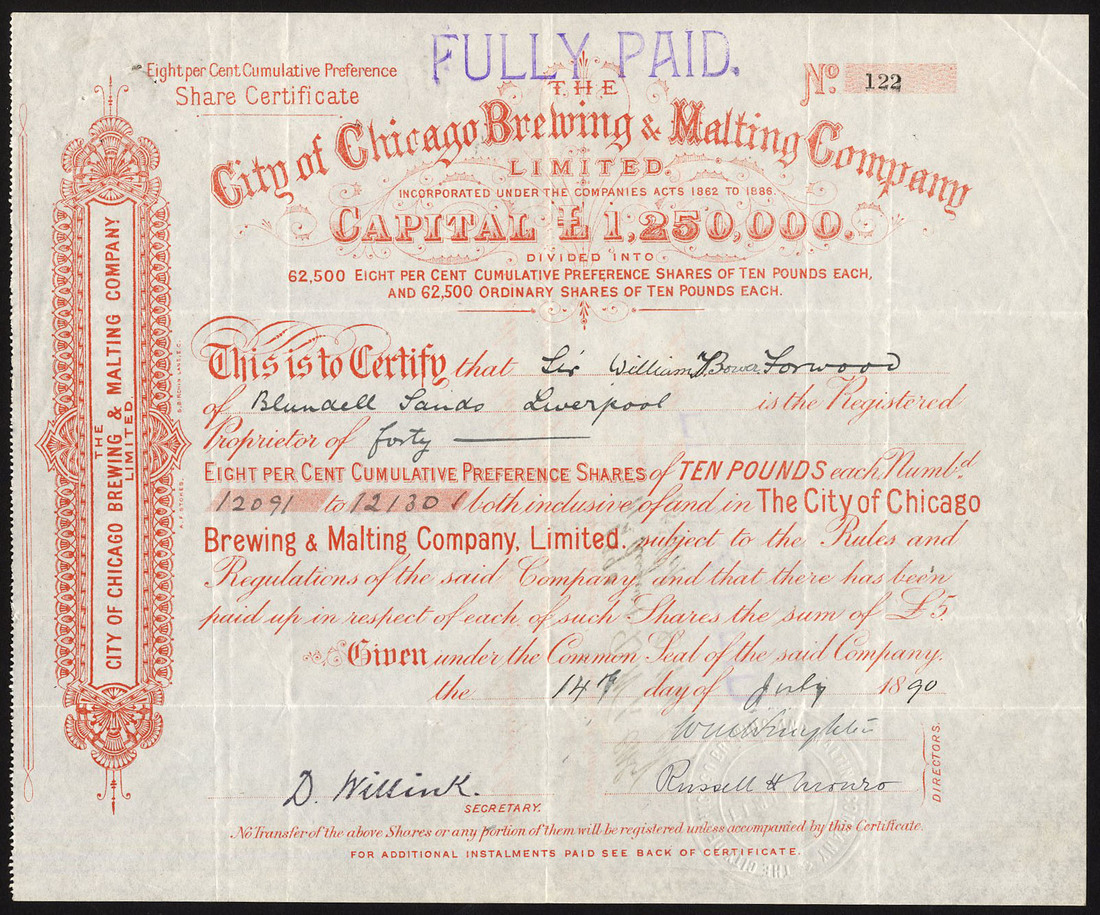 FULLY PAID.
Eight per Cent Cumulative Preference
Share Certificate
No. 122
THE
City of Chicago Brewing & Malting Company
LIMITED.
INCORPORATED UNDER THE COMPANIES ACTS 1862 TO 1886.
CAPITAL £1,250,000.
DIVIDED INTO
62,500 EIGHT PER CENT CUMULATIVE PREFERENCE SHARES OF TEN POUNDS EACH,
AND 62,500 ORDINARY SHARES OF TEN POUNDS EACH.
This is to Certify that Sir William Bower Forwood
of Blundell Sands Liverpool is the Registered
Proprietor of forty
EIGHT PER CENT CUMULATIVE PREFERENCE SHARES of TEN POUNDS each, Numbd.
12091 to 12130 both inclusive of and in The City of Chicago
Brewing & Malting Company, Limited. subject to the Rules and
Regulations of the said Company, and that there has been
paid up in respect of each of such Shares the sum of £5.
Given under the Common Seal of the said Company.
the 14 day of July 1890
Russell H Monro
DIRECTORS.
D. Willink.
SECRETARY.
No Transfer of the above Shares or any portion of them will be registered unless accompanied by this Certificate.
FOR ADDITIONAL INSTALMENTS PAID SEE BACK OF CERTIFICATE.
THE
CITY OF CHICAGO BREWING & MALTING COMPANY
LIMITED.